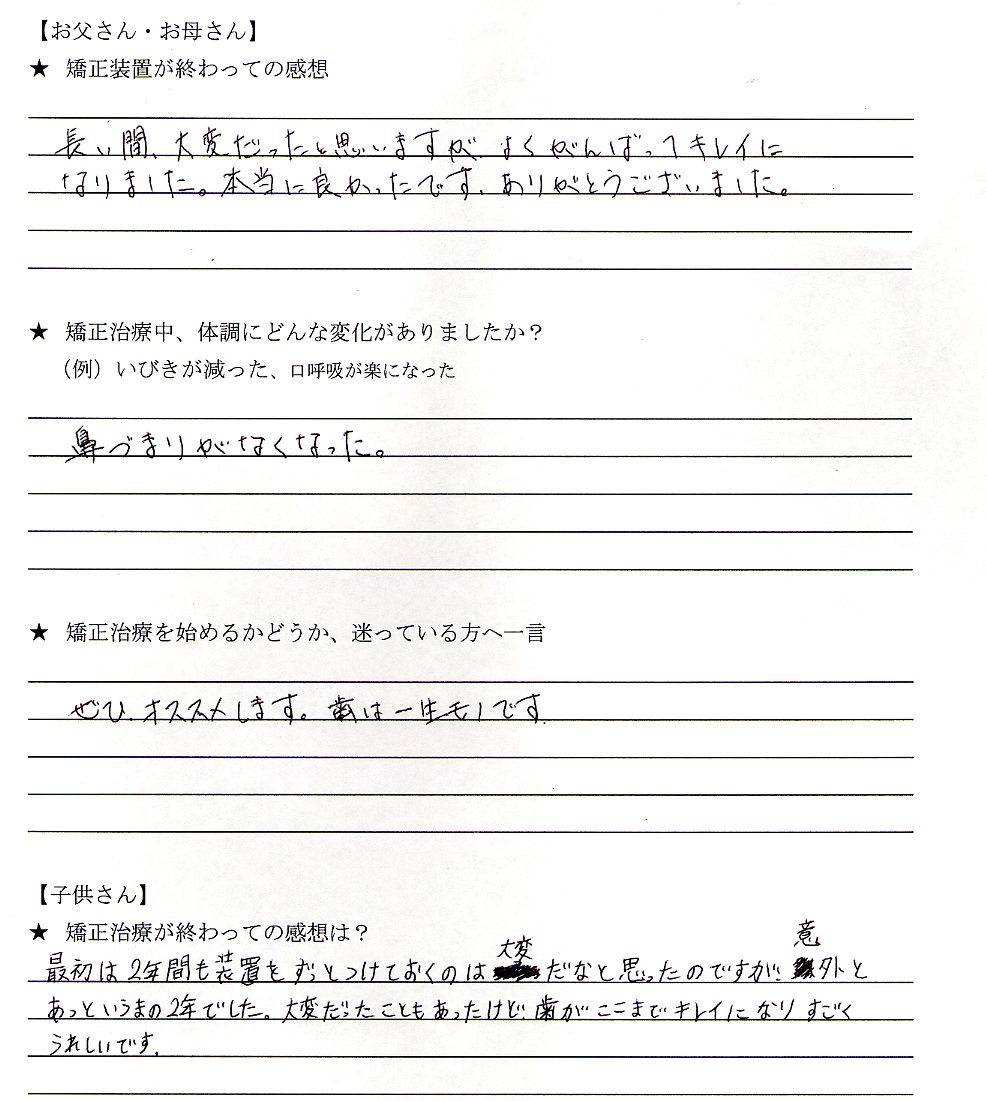 【お父さん・お母さん】
★ 矯正装置が終わっての感想
長い間、大変だったと思いますが、よくがんばってキレイに
なりました。本当に良かったです。ありがとうございました。
★ 矯正治療中、体調にどんな変化がありましたか？
（例）いびきが減った、口呼吸が楽になった
鼻づまりがなくなった。
★ 矯正治療を始めるかどうか、迷っている方へ一言
ぜひ、オススメします。歯は一生モノです。
【子供さん】
★ 矯正治療が終わっての感想は？
最初は2年間も装置をずっとつけておくのは大変だなと思ったのですが、意外と
あっというまの2年でした。大変だったこともあったけど、歯がここまでキレイになりすごく
うれしいです。